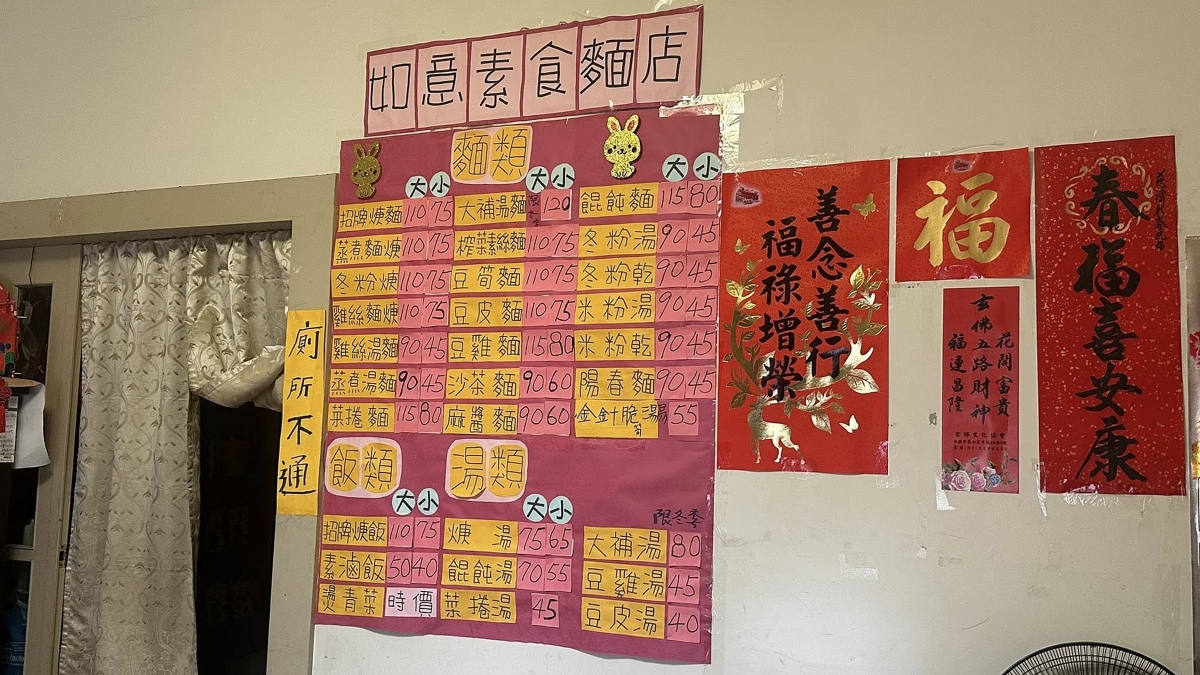 如意素食麵店
麵類
大 小 大 小 大 小
招牌焿麵 110 75 大補湯麵 限冬季 120 餛飩麵 115 80
蒸煮麵焿 110 75 榨菜素絲麵 110 75 冬粉湯 90 45
冬粉焿 110 75 豆筍麵 110 75 冬粉乾 90 45
雞絲麵焿 110 75 豆皮麵 110 75 米粉湯 90 45
雞絲湯麵 90 45 豆雞麵 115 80 米粉乾 90 45
蒸煮湯麵 90 45 沙茶麵 90 60 陽春麵 90 45
菜捲麵 115 80 麻醬麵 90 60 金針脆筍湯 55
飯類 湯類
大 小 大 小 限冬季
招牌焿飯 110 75 焿湯 75 65 大補湯 80
素滷飯 50 40 餛飩湯 70 55 豆雞湯 45
燙青菜 時價 菜捲湯 45 豆皮湯 40
廁所不通
善念善行
福祿增榮
福
花開富貴
玄佛五路財神
福運昌隆
春福喜安康